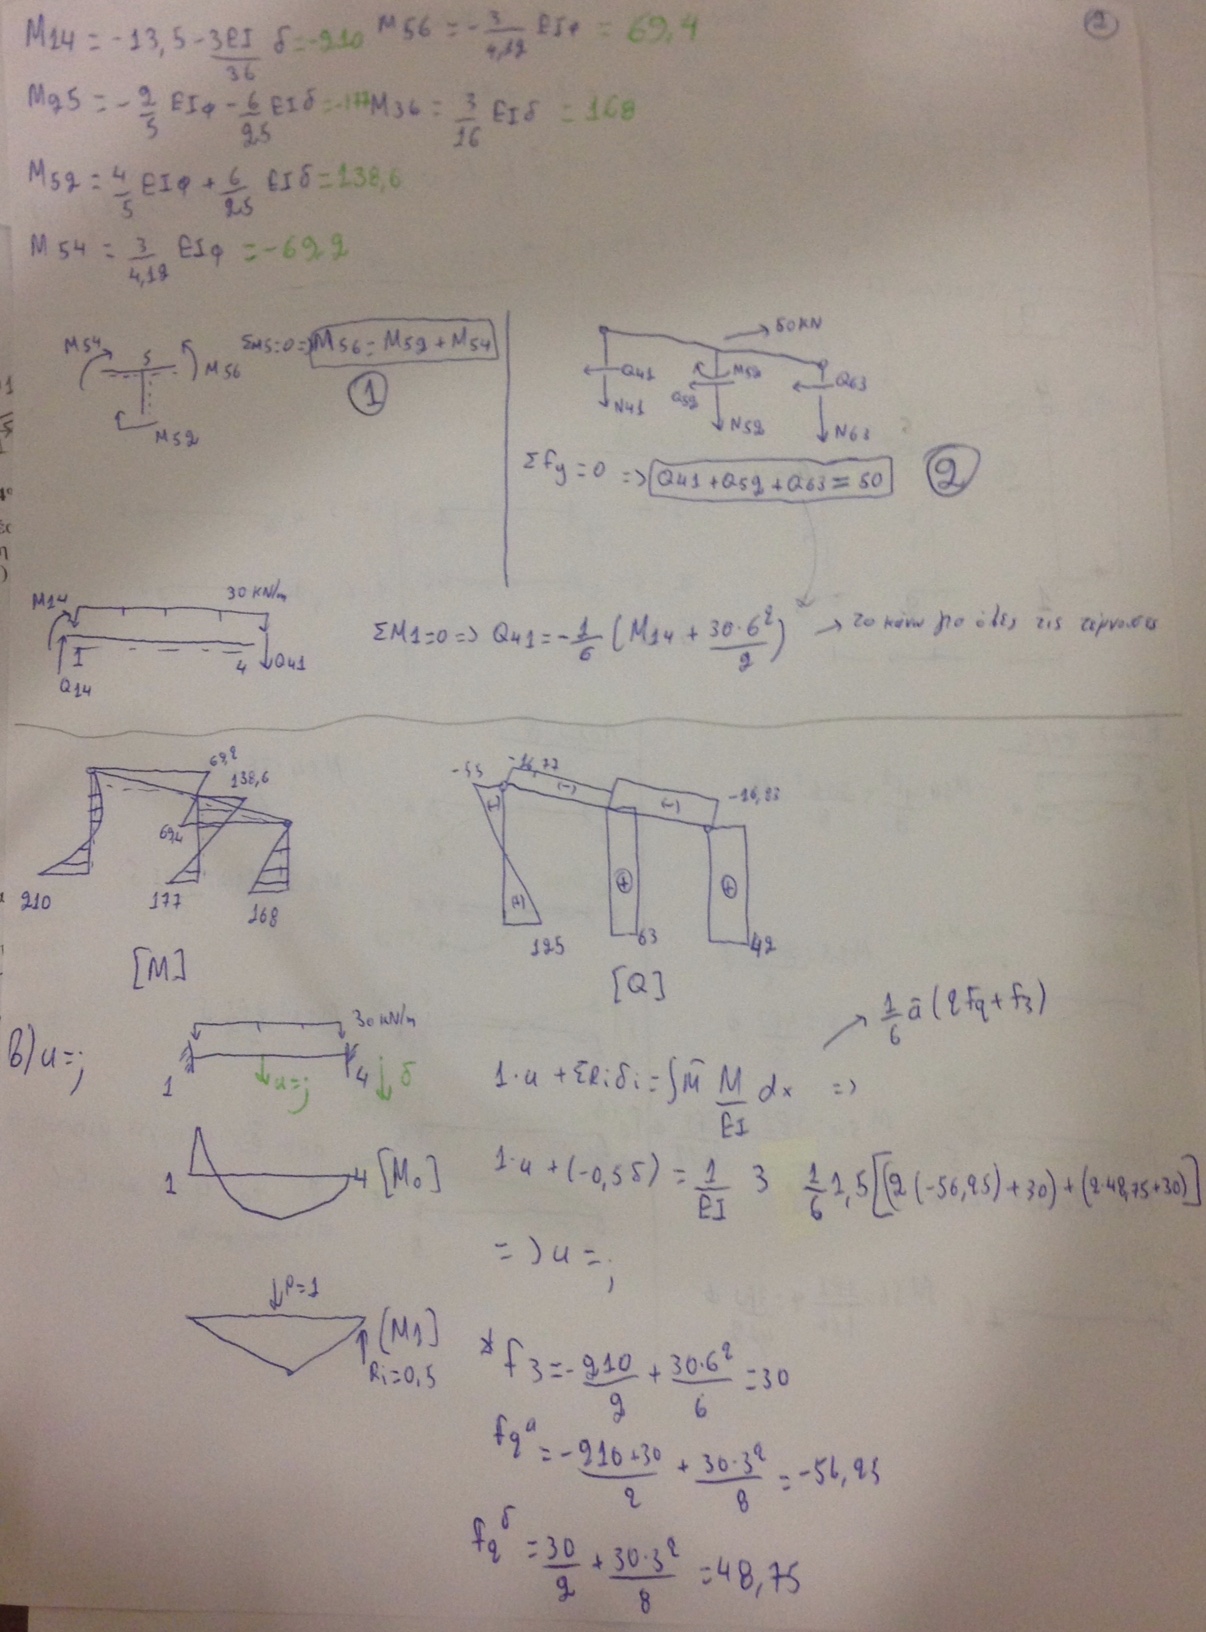 2
M14 = -13,5 - 3EI/36 δ = -210   M56 = -3/4,12 EIφ = 69,4
M25 = -2/5 EIφ - 6/25 EIδ = -177   M36 = 3/16 EIδ = 168
M52 = 4/5 EIφ + 6/25 EIδ = 138,6
M54 = 3/4,12 EIφ = -69,2
M54 5 M56
M52
ΣM5=0 => M56 = M52 + M54
1
50 KN
Q41 M52 Q63
Q52
N41 N52 N63
Σfy = 0 => Q41 + Q52 + Q63 = 50
2
M14 30 KN/m
1 4 Q41
Q14
ΣM1=0 => Q41 = -1/6 (M14 + 30·6²/2) → το κάνω για όλες τις τέμνουσες
69,2
138,6
69,4
210 177 168
[M]
-55 -16,77 (-) (-) -16,83
(-)
(+) + +
125 63 42
[Q]
β) u=;
30 KN/m
1 u=; 4 δ
1·u + ΣRiδi = ∫M̄ M/EI dx =>
1/6 ā (2fq + f3)
1 4 [M0]
1·u + (-0,5δ) = 1/EI 3 1/6 1,5 [(2(-56,25)+30) + (2·48,75+30)]
=> u =;
P=1
[M1]
Ri=0,5
* f3 = -210/2 + 30·6²/6 = 30
fq^a = -210+30/2 + 30·3²/8 = -56,25
fq^δ = 30/2 + 30·3²/8 = 48,75